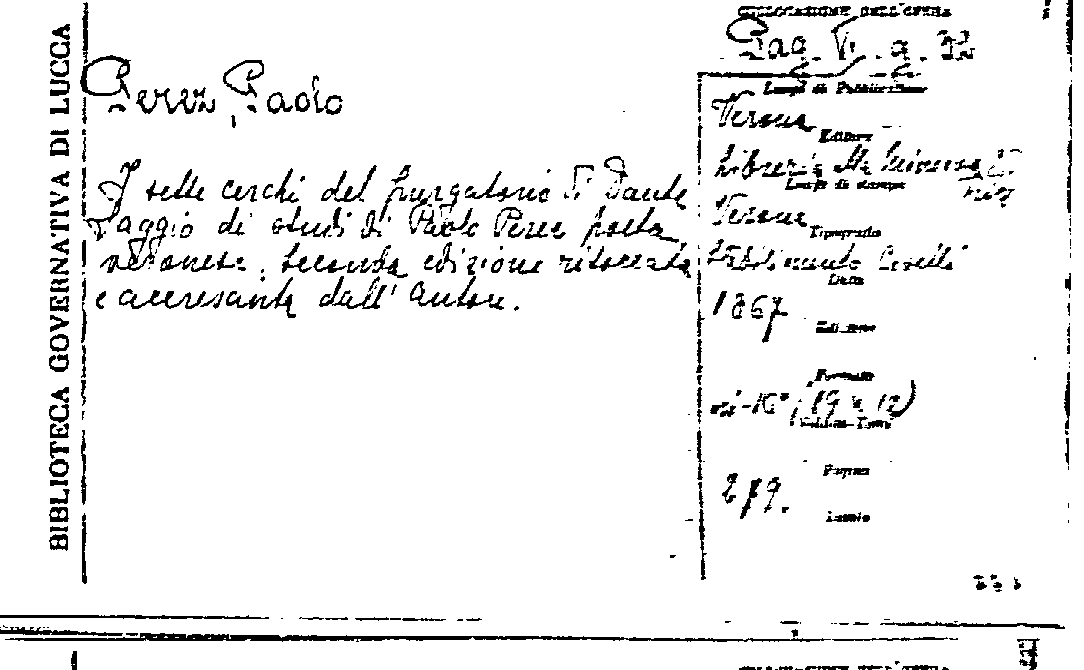 BIBLIOTECA GOVERNATIVA DI LUCCA
Perez, Paolo
I sette cerchi del purgatorio di Dante
Saggio di studi di Paolo Perez poeta
veronese, seconda edizione ritoccata
e accresciuta dall' autore.
COLLOCAZIONE DELL'OPERA
Pag. V. g. 32
Luogo di Pubblicazione
Verona
Editore
Libreria alla Minerva
Luogo di stampa
Verona
Tipografia
Stabilimento Civelli
Data
1867
Edizione
Formato
in-16° (19 x 12)
Pagine
279.
COLLOCAZIONE DELL'OPERA